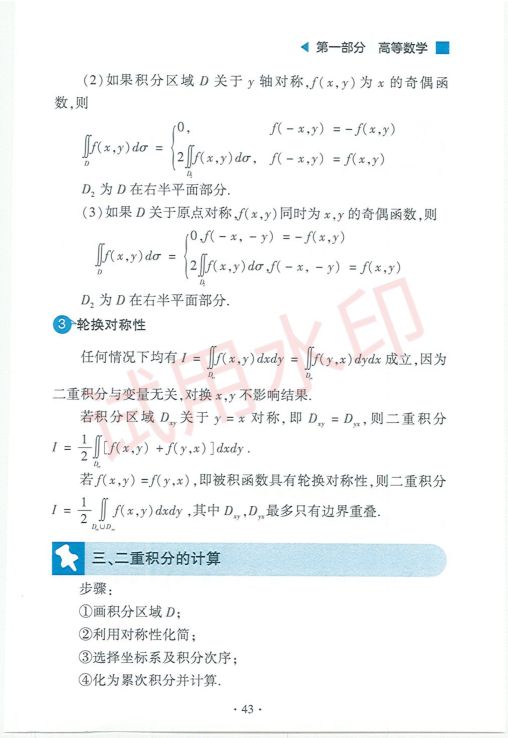 第一部分 高等数学
(2)如果积分区域 D 关于 y 轴对称,f(x,y)为 x 的奇偶函
数,则
∬_D f(x,y)dσ = { 0, f(-x,y) = -f(x,y)
2∬_{D₂} f(x,y)dσ, f(-x,y) = f(x,y)
D₂ 为 D 在右半平面部分.
(3)如果 D 关于原点对称,f(x,y)同时为 x,y 的奇偶函数,则
∬_D f(x,y)dσ = { 0,f(-x,-y) = -f(x,y)
2∬_{D₂} f(x,y)dσ,f(-x,-y) = f(x,y)
D₂ 为 D 在右半平面部分.
3 轮换对称性
任何情况下均有 I = ∬_{D_xy} f(x,y)dxdy = ∬_{D_yx} f(y,x)dydx 成立,因为
二重积分与变量无关,对换 x,y 不影响结果.
若积分区域 D_xy 关于 y = x 对称,即 D_xy = D_yx,则二重积分
I = 1/2 ∬_{D_xy} [f(x,y) + f(y,x)]dxdy.
若 f(x,y) = f(y,x),即被积函数具有轮换对称性,则二重积分
I = 1/2 ∬_{D_xy∪D_yx} f(x,y)dxdy,其中 D_xy,D_yx 最多只有边界重叠.
三、二重积分的计算
步骤:
①画积分区域 D;
②利用对称性化简;
③选择坐标系及积分次序;
④化为累次积分并计算.
· 43 ·
试用水印